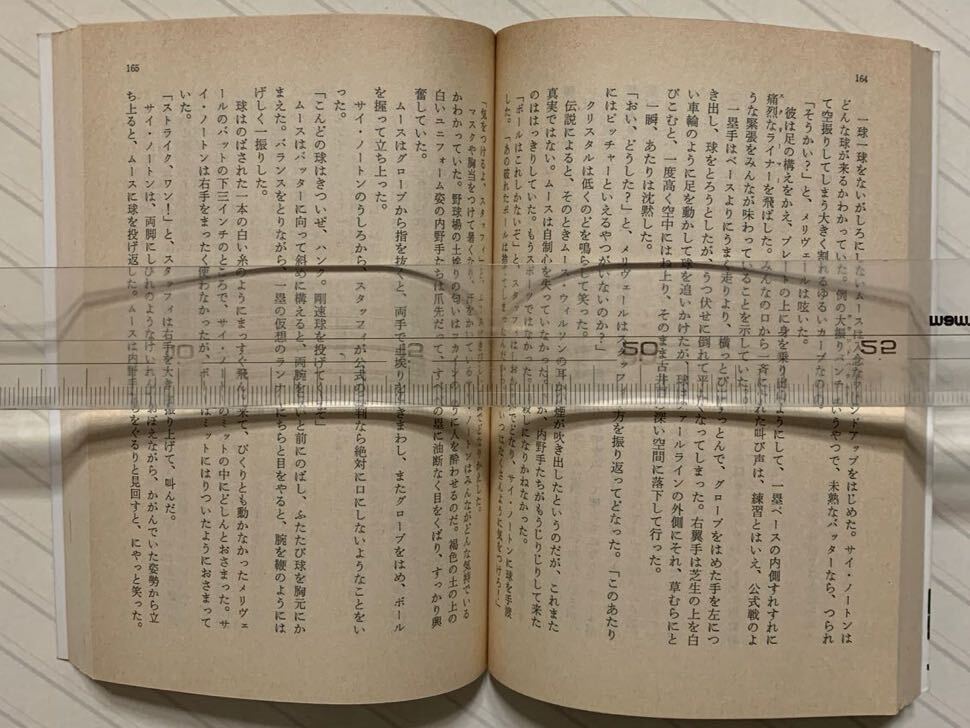 164
一球一球をないがしろにしないムースは 念な ンドアップをはじめた。サイ・ノートンは
どんな球が来るかわかっていた。例の大振り パンチ いうやつで、未熟なバッターなら、つられ
て空振りしてしまう大きく割れるゆるいカーブなの
「そうかい?」と、メリヴェールは呟いた。
彼は足の構えをかえ、プレートの上に身を乗り出 ようにして、一塁ベースの内側すれすれに
痛烈なライナーを飛ばした。みんなの口から一斉に れた叫び声は、練習とはいえ、公式戦のよ
うな緊張をみんなが味わっていることを示していた
一塁手はベースよりにうまく走りより、横っとびに っとんで、グローブをはめた手を左につ
き出し、球をとろうとしたが、うつ伏せに倒れて平 なってしまった。右翼手は芝生の上を白
い車輪のように足を動かして球を追いかけたが、球 ァールラインの外側にそれ、草むらにと
びこむと、一度高く空中にはね上り、そのまま古井 深い空間に落下して行った。
一瞬、あたりは沈黙した。
「おい、どうした?」と、メリヴェールはベ 方を振り返ってどなった。「このあたり
にはピッチャーといえるやつがいないのか?
クリスタルは低くのどを鳴らして笑った。
伝説によると、そのときムース・ウィルソンの耳か 煙が吹き出したというのだが、これまた
真実ではない。ムースは自制心を失っていなかった 内野手たちがもうじりじりして来た
のははっきりしていた。もうスポーツではなかった。 殺しになりかねなかった。
「ボールはこれしかないぞ」と、スタッフィは どなり、サイ・ノートンに球を手渡
した。「あの破れたボールは
165
「気をつけるよ、スタッフィ
マスクや胸当をつけて暑くなり、汗をかいている ノートンはみんながどんな気持でいる
かわかっていた。野球場の土埃りの匂いは に人を酔わせるのだ。褐色の土の上の
白いユニフォーム姿の内野手たちは爪先だって、すべての塁に油断なく目をくばり、すっかり興
奮していた。
ムースはグローブから指を抜くと、両手で土埃りを きまわし、またグローブをはめ、ボール
を握って立ち上った。
サイ・ノートンのうしろから、スタッフィが公式の 判なら絶対に口にしないようなことをい
った。
「こんどの球はきついぜ、ハンク。剛速球を投げてく ぞ」
ムースはバッターに向って斜めに構えると、両腕を いと前にのばし、ふたたび球を胸元にか
まえた。バランスをとりながら、一塁の仮想のランナ にちらと目をやると、腕を鞭のようには
げしく一振りした。
球はのばされた一本の白い糸のようにまっすぐ飛ん 来て、ぴくりとも動かなかったメリヴェ
ールのバットの下三インチのところで、サイ・ノー のミットの中にどしんとおさまった。サ
イ・ノートンは右手をまったく使わなかったが、ボー はミットにはりついたようにおさまって
いた。
「ストライク、ワン!」と、スタッフィは右手を大き 振り上げて、叫んだ。
サイ・ノートンは、両脚にしびれのようなけいれん おぼえながら、かがんでいた姿勢から立
ち上ると、ムースに球を投げ返した。ムースは内野手 ちをぐるりと見回すと、にやっと笑った。
10
12
50
52